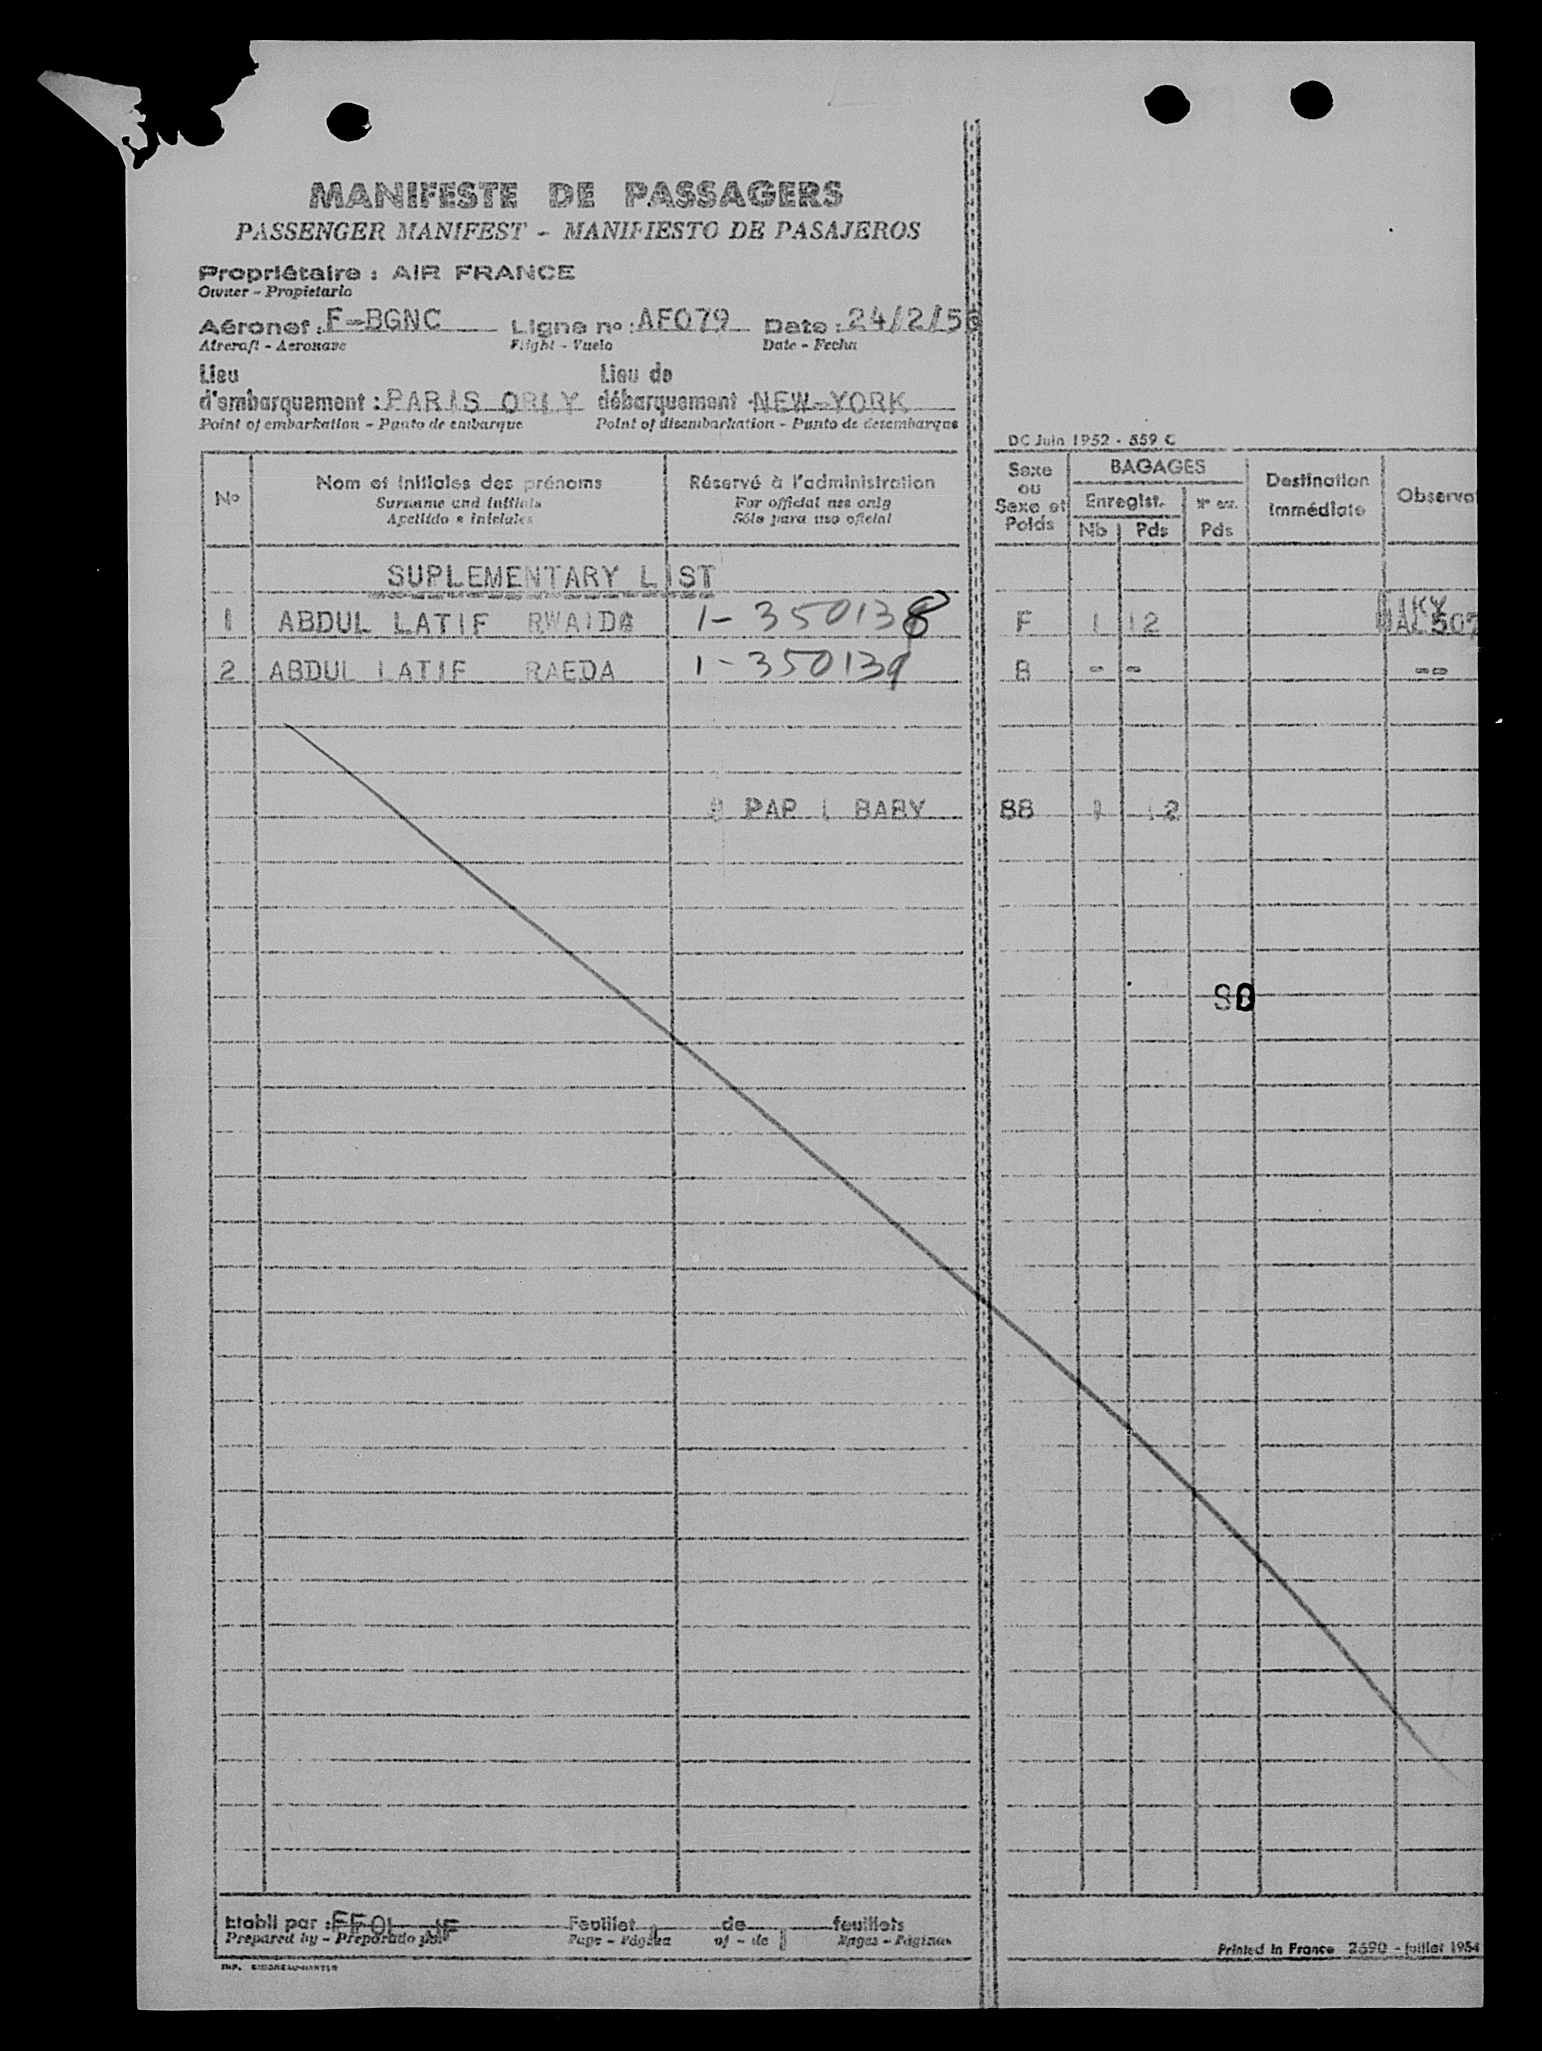 MANIFESTE DE PASSAGERS
PASSENGER MANIFEST - MANIFIESTO DE PASAJEROS
Propriétaire : AIR FRANCE
Owner - Propietario
Aéronef : F-BGNC Ligne n° : AF079 Date : 24/2/56
Aircraft - Aeronave Flight - Vuelo Date - Fecha
Lieu Lieu de
d'embarquement : PARIS ORLY débarquement NEW-YORK
Point of embarkation - Punto de embarque Point of disembarkation - Punto de desembarque
DC Juin 1952 - 559 C
N° Nom et initiales des prénoms Réservé à l'administration Saxe ou Saxe et Poids BAGAGES Destination immédiate Observat
Surname and initials For official use only Enregist. Nb Pds Pds
Apellido e iniciales Sólo para uso oficial
SUPLEMENTARY LIST
1 ABDUL LATIF RWAIDA 1-350138 F 1 12 507
2 ABDUL LATIF RAEDA 1-350139 B - - --
PAP 1 BABY BB 1 12
Etabli par : Feuillet de feuillets
Prepared by - Preparado por Page - Página of - de Pages - Páginas
Printed in France 2690 - juillet 1954
IMP.